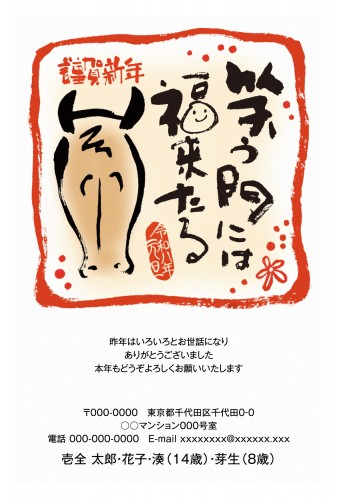 謹賀新年
笑う門には
福来たる
令和八年
元旦
昨年はいろいろとお世話になり
ありがとうございました
本年もどうぞよろしくお願いいたします
〒000-0000　東京都千代田区千代田0-0
○○マンション000号室
電話 000-000-0000　E-mail xxxxxxxx@xxxxxx.xxx
壱全 太郎・花子・湊（14歳）・芽生（8歳）